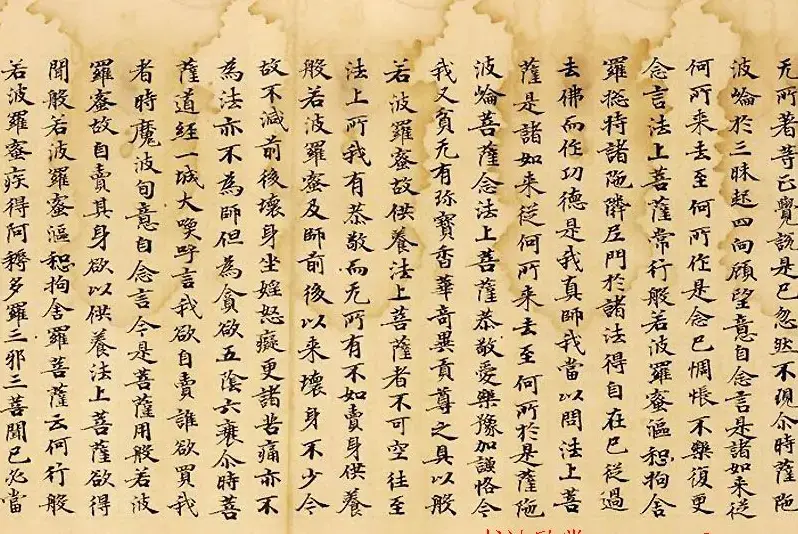 无所著等正覺說是已忽然不現尒時薩陁
波崘於三昧起四向顧望意自念言是諸如来従
何所来去至何所作是念已惆悵不樂復更
念言法上菩薩常行般若波羅蜜漚惒拘舍
羅捴持諸陁隣尼門於諸法得自在已従過
去佛而作功德是我真師我當以問法上菩
薩是諸如来従何所来去至何所於是薩陁
波崘菩薩念法上菩薩恭敬愛樂豫加誠恪今
我又貧无有珎寶香華奇異貢尊之具以般
若波羅蜜故供養法上菩薩者不可空往至
法上所我有恭敬而无所有不如賣身供養
般若波羅蜜及師前後以来壞身不少今
故不減前後壞身坐婬怒癡更諸苦痛亦不
為法亦不為師但為貪欲五陰六衰尒時菩
薩道經一城大喚呼言我欲自賣誰欲買我
者時魔波旬意自念言今是菩薩用般若波
羅蜜故自賣其身欲以供養法上菩薩欲得
聞般若波羅蜜漚惒拘舍羅菩薩云何行般
若波羅蜜疾得阿耨多羅三耶三菩聞已必當